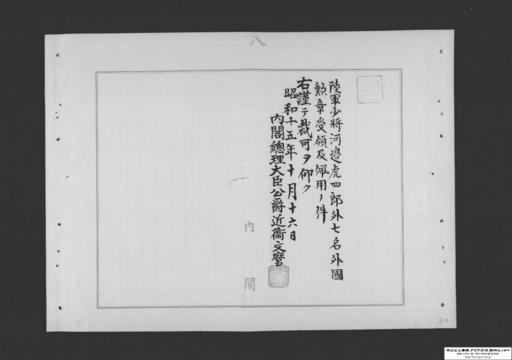 八
陸軍少將河邊虎四郎外七名外國
勲章受領及佩用ノ件
右謹テ裁可ヲ仰ク
昭和十五年十月十六日
內閣總理大臣公爵近衞文麿
內閣